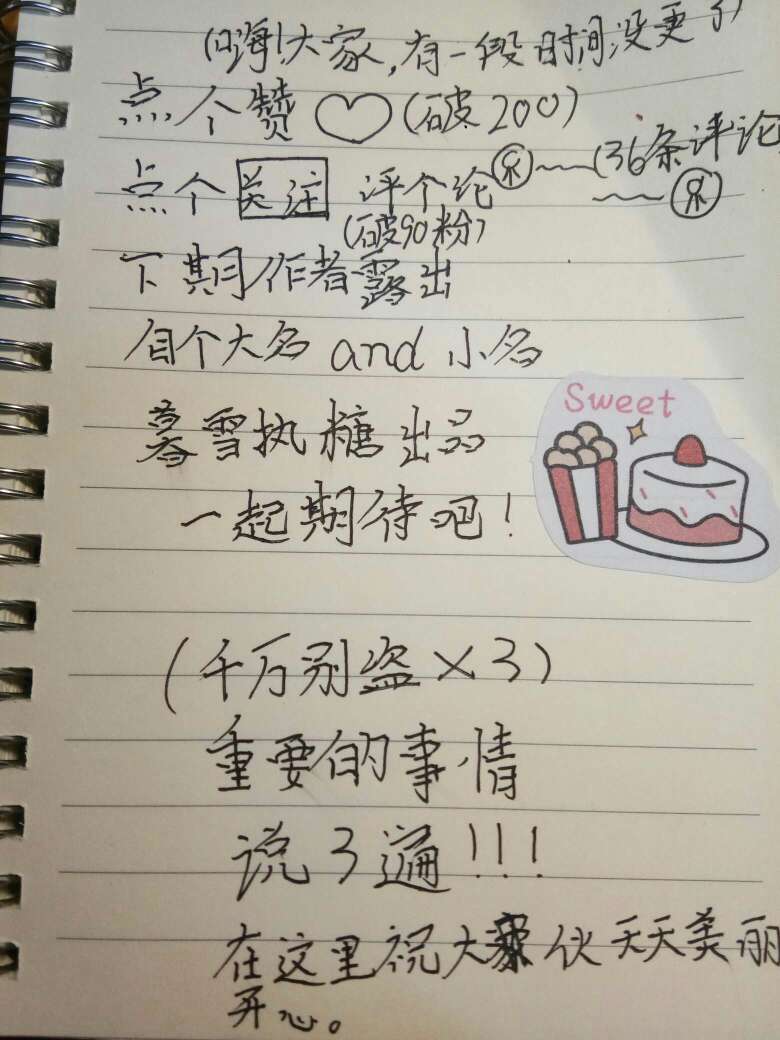 (嗨!大家,有一段时间没更了)
点个赞♡(破200)
点个关注 评个论~~(36条评论
~~
(破90粉)
下期作者露出
自个大名and小名
暮雪执糖出品
一起期待吧!
Sweet
(千万别盗×3)
重要的事情
说3遍!!!
在这里祝大家伙天天美丽
开心。